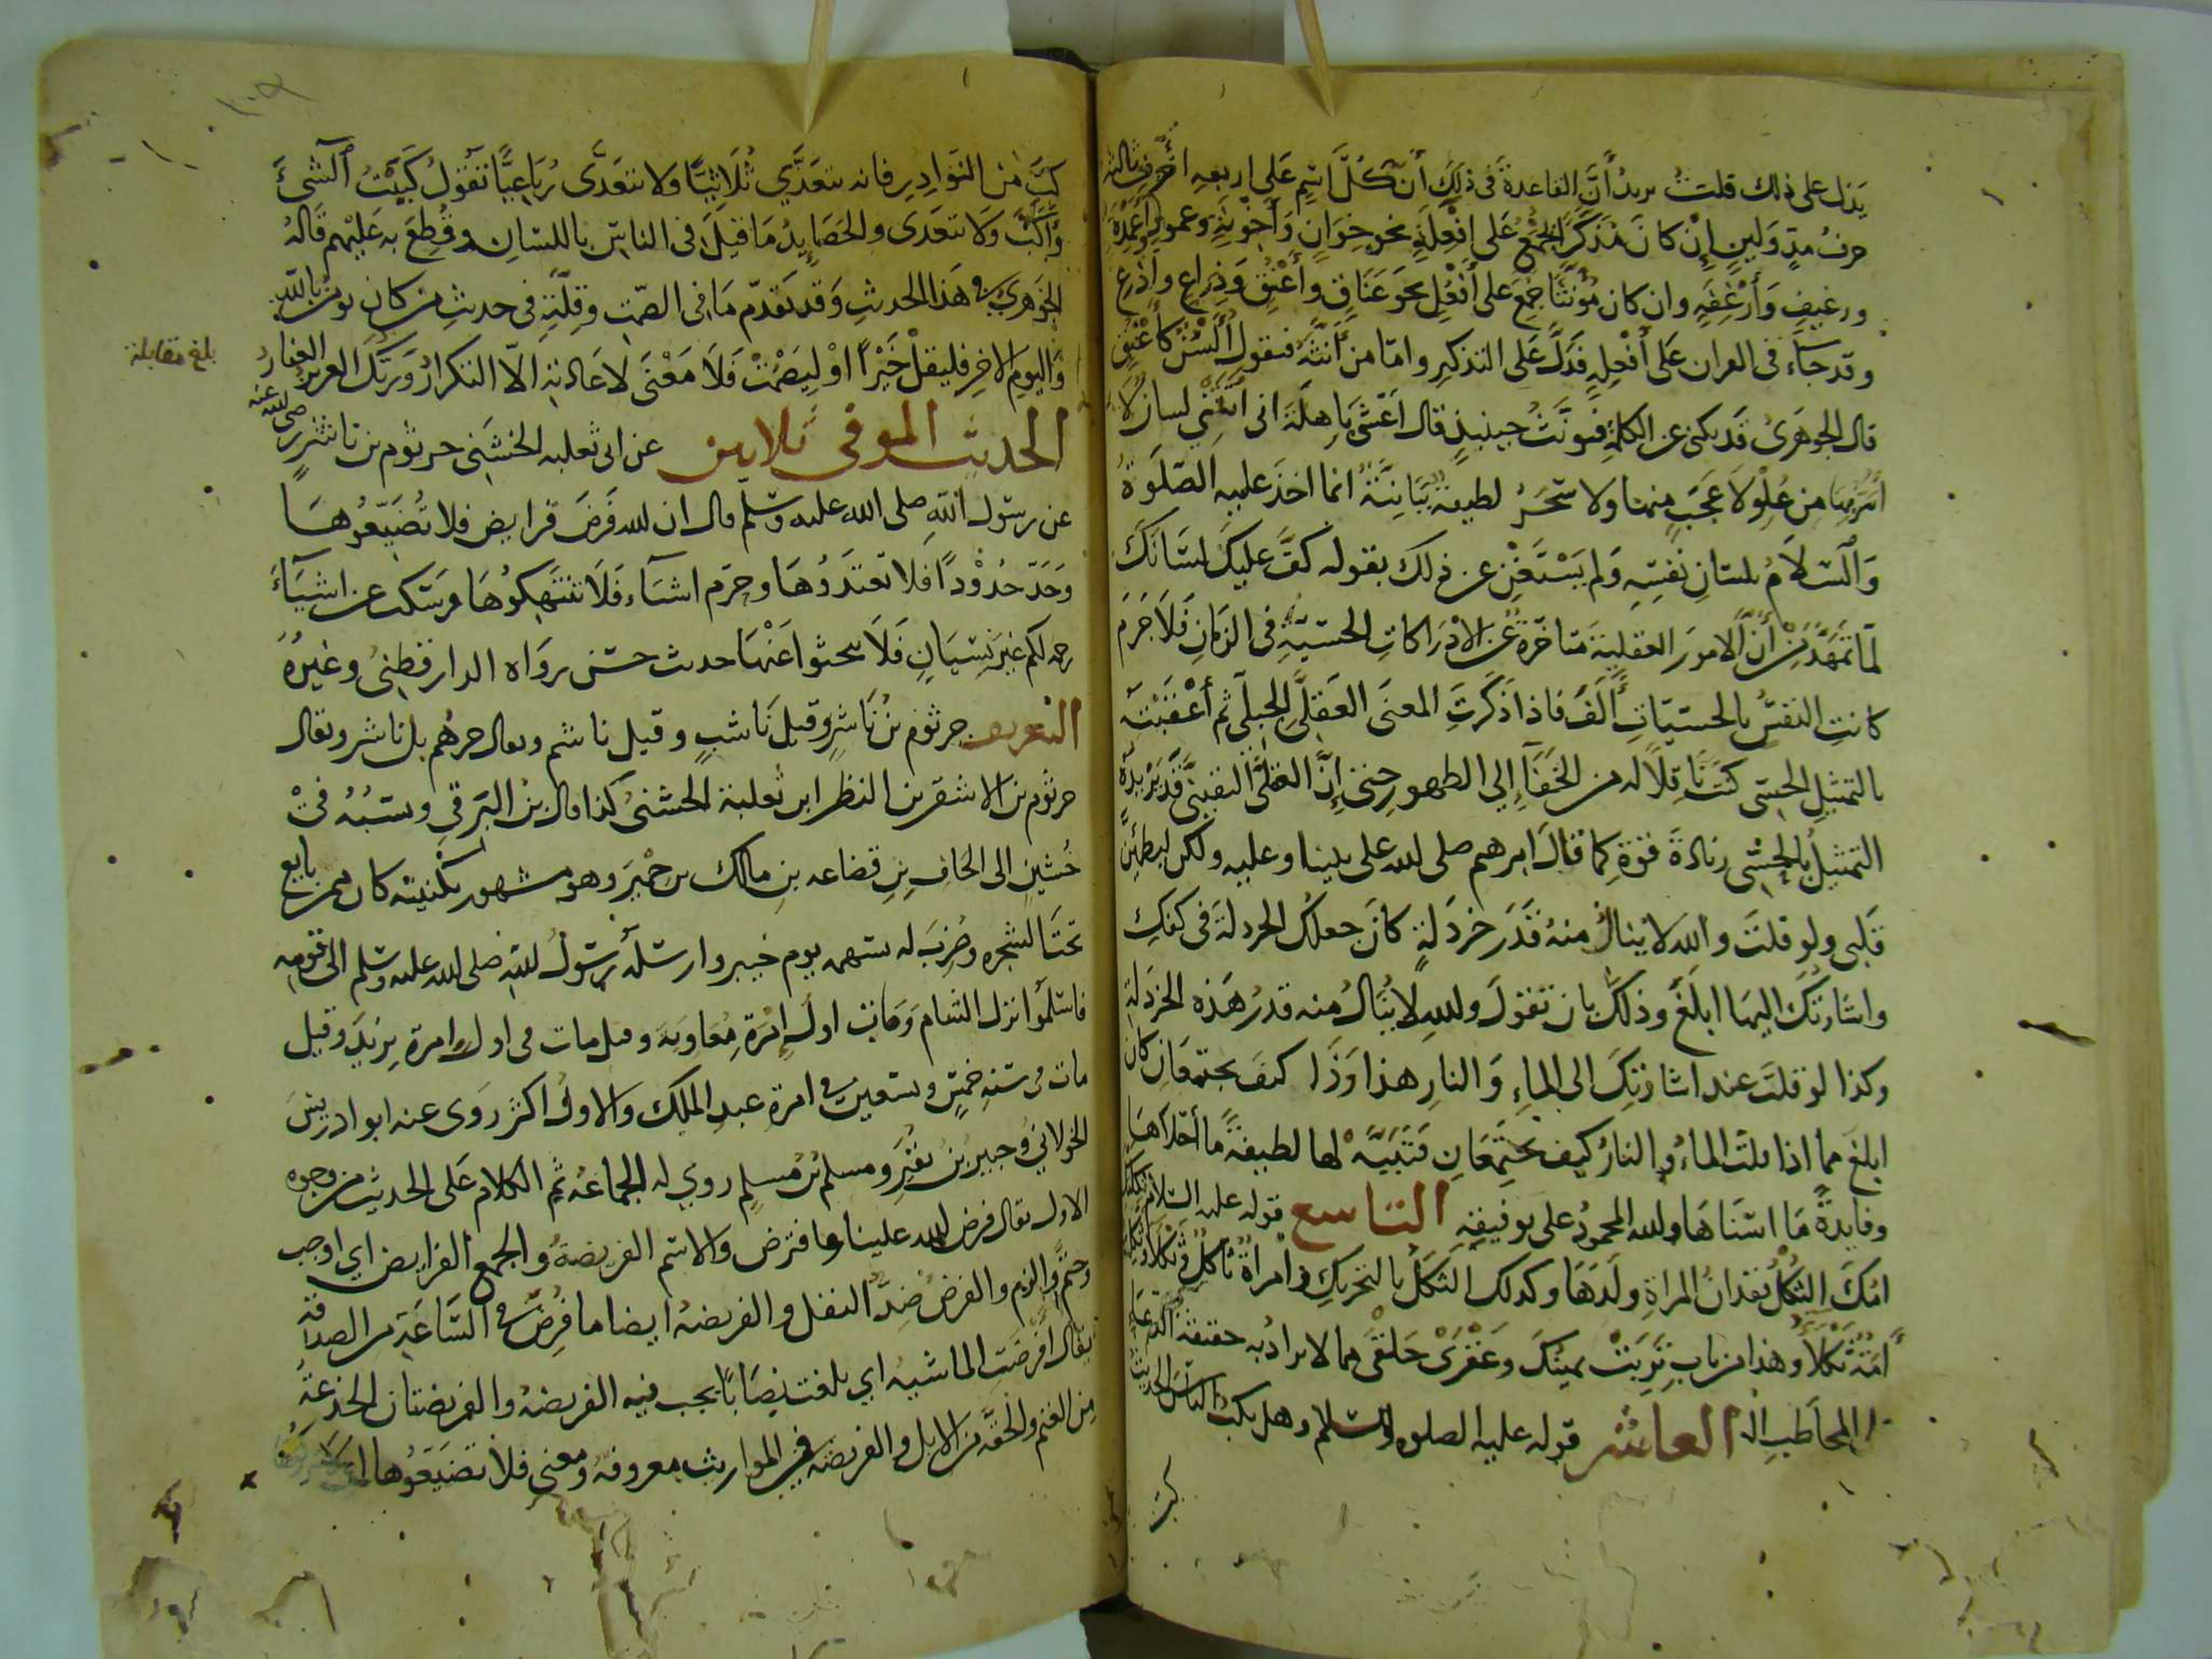 يدل على ذلك قلت يريد أن القاعدة في ذلك أن كل اسم على اربعه احرف ثالثه
حرف مد ولين إن كان مذكرا جمع على افعلة نحو خوان وأخونة وعمود وأعمدة
ورغيف وأرغفه وان كان مؤنثا جمع على أفعل نحو عناق وأعنق وذراع وأذرع
وقد جاء في القران على أفعلة فدل على التذكير واما من أنثه فيقول ألسن كأعنق
قال الجوهري قد يكنى عن الكلمة فيؤنث حينئذ قال اعشى باهلة اني أتتني لسان لا
أسر بها من علو لا عجب منها ولا سخر لطيفة بيانية انما اخذ عليه الصلوة
والسلام بلسان نفسه ولم يستغن عن ذلك بقوله كف عليك لسانك
لما تمهد من أن الامور العقلية متاخرة عن الادراكات الحسية في الزمان فلا جرم
كانت النفس بالحسيات ألف فاذا ذكرت المعنى العقلي الجلي ثم أعقبته
بالتمثيل الحسي كنت ناقلا له من الخفاء إلى الظهور حتى إن العقلي اليقيني قد يزيده
التمثيل بالحسي زيادة قوة كما قال ابرهيم صلى الله على نبينا وعليه ولكن ليطمئن
قلبي ولو قلت والله لا ينال منه قدر خردلة كان جعلك الخردلة في كفك
واشارتك اليها ابلغ وذلك بان تقول والله لا ينال منه قدر هذه الخردلة
وكذا لو قلت عند اشارتك الى الماء والنار هذا وذا كيف يجتمعان كان
ابلغ مما اذا قلت الماء والنار كيف يجتمعان فتنبه لها لطيفة ما أحلاها
وفايدة ما اسناها ولله المحمود على توفيقه التاسع قوله عليه السلام ثكلتك
امك الثكل فقدان المراة ولدها وكذلك الثكل بالتحريك وامراة ثاكل وثكلى وثكلته
أمه ثكلا وهذا من باب تربت يمينك وعقرى حلقى مما لا يراد به حقيقة الدعاء على
المخاطب العاشر قوله عليه الصلوه والسلام وهل يكب الناس الحديث
كب
كب من النوادر فانه يتعدي ثلاثيا ولا يتعدى رباعيا تقول كببت الشيء
وأكب ولا تتعدى والحصايد ما قيل في الناس باللسان وقطع به عليهم قاله
الجوهري في هذا الحديث وقد تقدم ما في الصمت وقلته في حديث من كان يؤمن بالله
واليوم الاخر فليقل خيرا او ليصمت فلا معنى لاعادته الا التكرار وربك العزيز الغفار
بلغ مقابلة
الحديث الموفي ثلاثين عن ابي ثعلبه الخشني جرثوم بن ناشر رضي الله عنه
عن رسول الله صلى الله عليه وسلم قال ان الله فرض فرايض فلا تضيعوها
وحد حدودا فلا تعتدوها وحرم اشياء فلا تنتهكوها وسكت عن اشياء
رحمه لكم غير نسيان فلا تبحثوا عنها حديث حسن رواه الدارقطني وغيره
التعريف جرثوم بن ناشر وقيل ناشب وقيل ناشم ويقال جرهم بن ناشر ويقال
جرثوم بن الاشقر بن النظر ابن ثعلبة الخشني كذا قال بن البرقي ونسبه في
خشين الى الحاف بن قضاعه بن مالك بن حمير وهو مشهور بكنيته كان ممن بايع
تحت الشجره وضرب له بسهمه يوم خيبر وارسله رسول الله صلى الله عليه وسلم الى قومه
فاسلموا نزل الشام ومات اول إمرة معاوية وقيل مات في اول امرة يزيد وقيل
مات في سنه خمس وسبعين في امرة عبد الملك والاول اكثر روى عنه ابو ادريس
الخولاني وجبير بن نفير ومسلم بن مسلم روي له الجماعه ثم الكلام على الحديث من وجوه
الاول يقال فرض الله علينا وافترض والاسم الفريضة والجمع الفرايض اي اوجب
وحتم والزم والفرض ضد النفل والفريضه ايضا ما فرض في السائمة من الصدقة
يقال أفرضت الماشيه اي بلغت نصابا يجب فيه الفريضه والفريضتان الجذعة
من الغنم والحقه من الابل والفريضه في المواريث معروفه ومعنى فلا تضيعوها